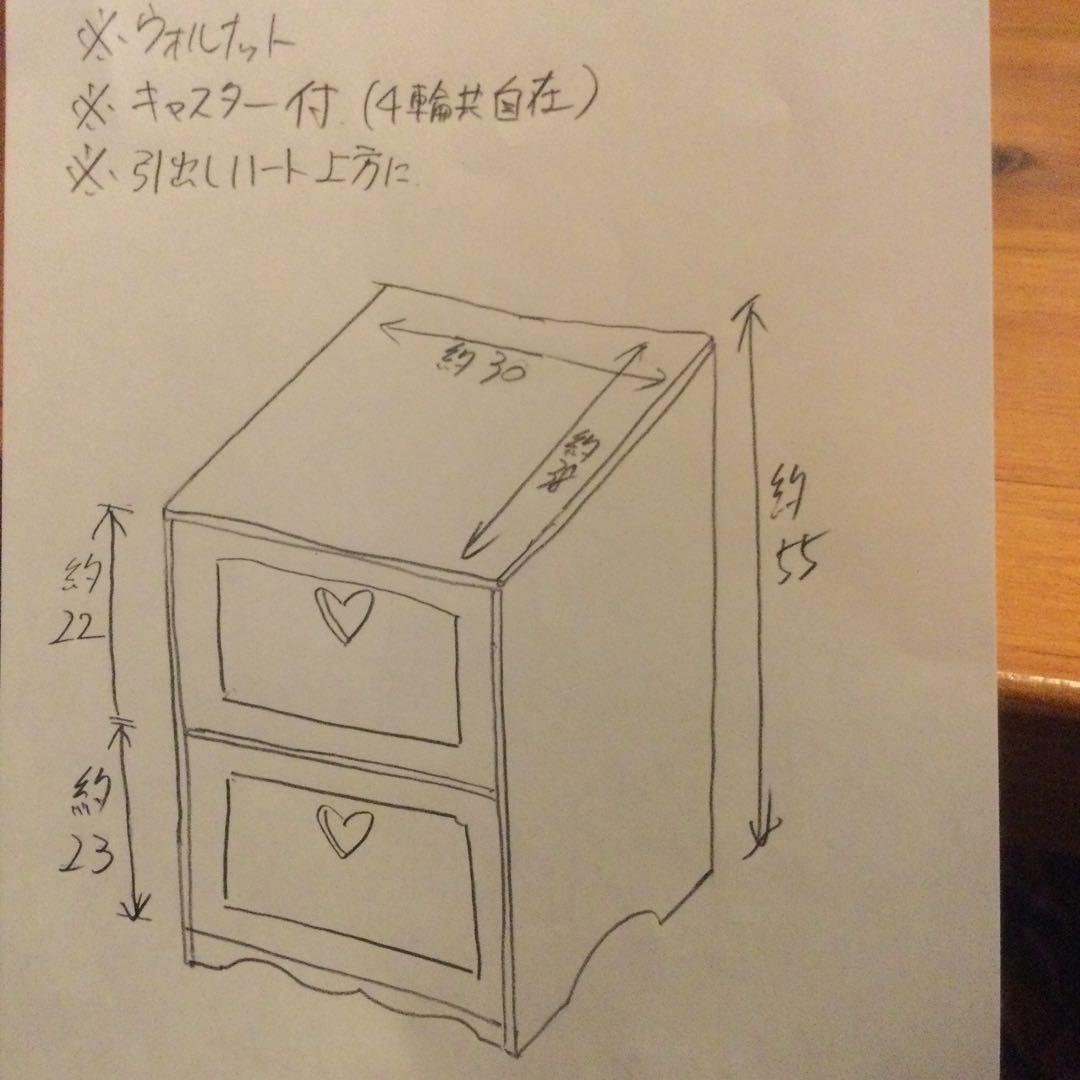 ※ ウォルナット
※ キャスター付 (4輪共自在)
※ 引出しハート上方に
約30
約
約
55
約
22
約
23